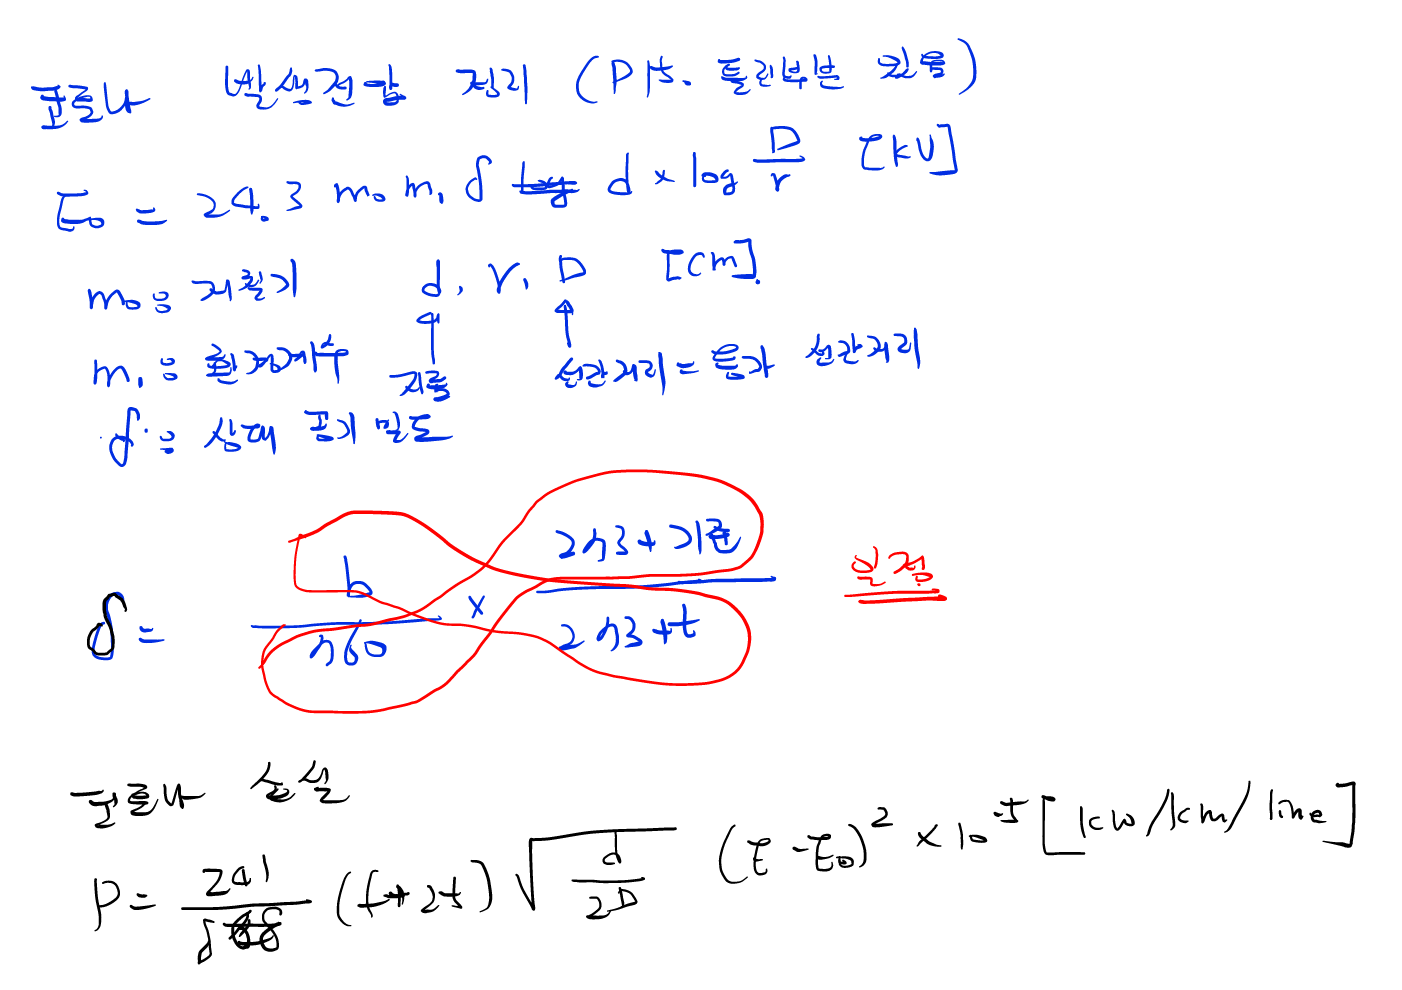 코로나 발생전압 정리 (P 15. 틀린부분 있음)
E₀ = 24.3 m₀ m₁ δ d × log D/r [kV]
m₀ : 저활기 d, r, D [cm].
m₁ : 환경계수 지름 선간거리 = 등가 선간거리
δ : 상대 공기 밀도
δ = b/760 × 273+기준/273+t 일정
코로나 손실
P = 241/δ (f+25) √(d/2D) (E - E₀)² × 10⁻⁵ [kw/km/line]